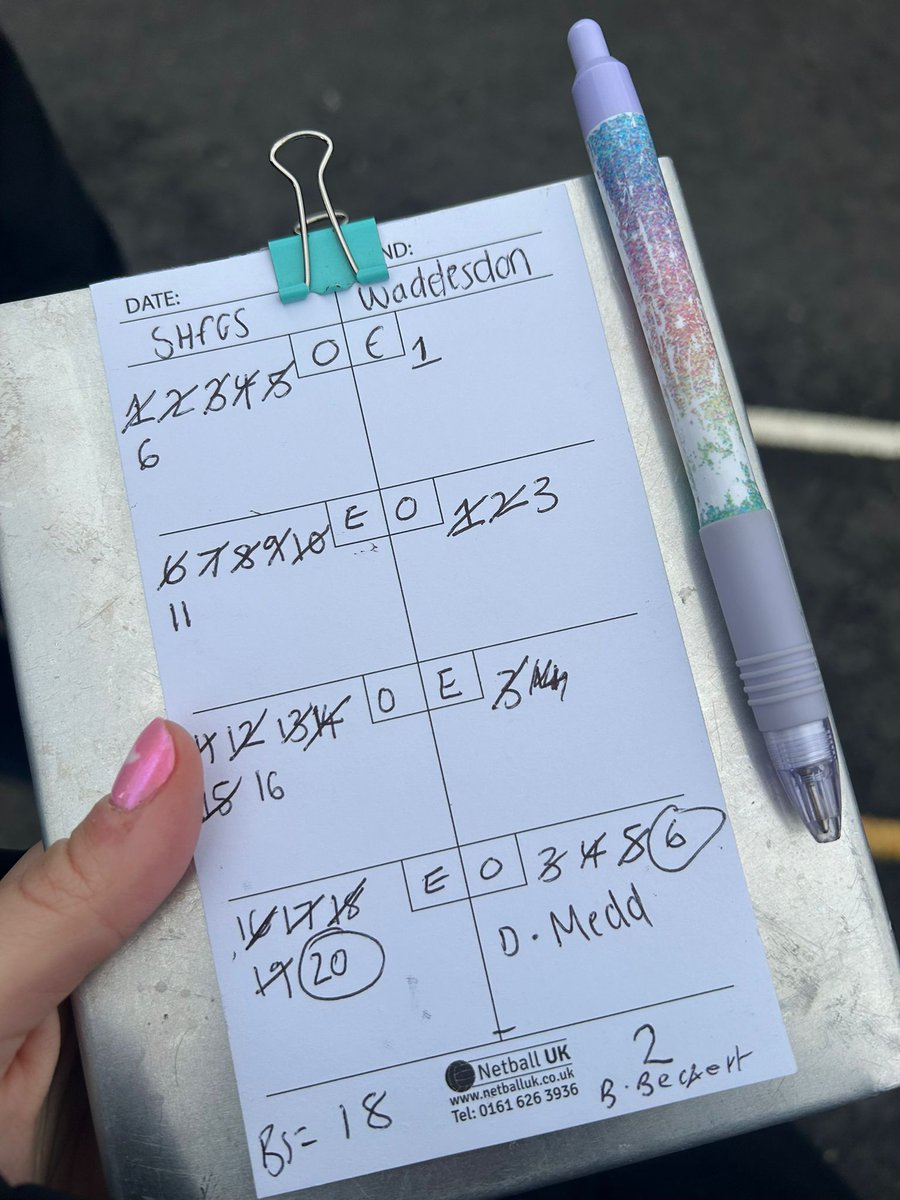 DATE:
ND:
SHFGS Waddesdon
O C 1
1 2 3 4 5
6
E O 1 2 3
6 7 8 9 10
11
O E 3
12 13 14
15 16
E O 3 4 5 6
16 17 18
19 20
D. Medd
Netball UK
www.netballuk.co.uk
Tel: 0161 626 3936
2
BS= 18